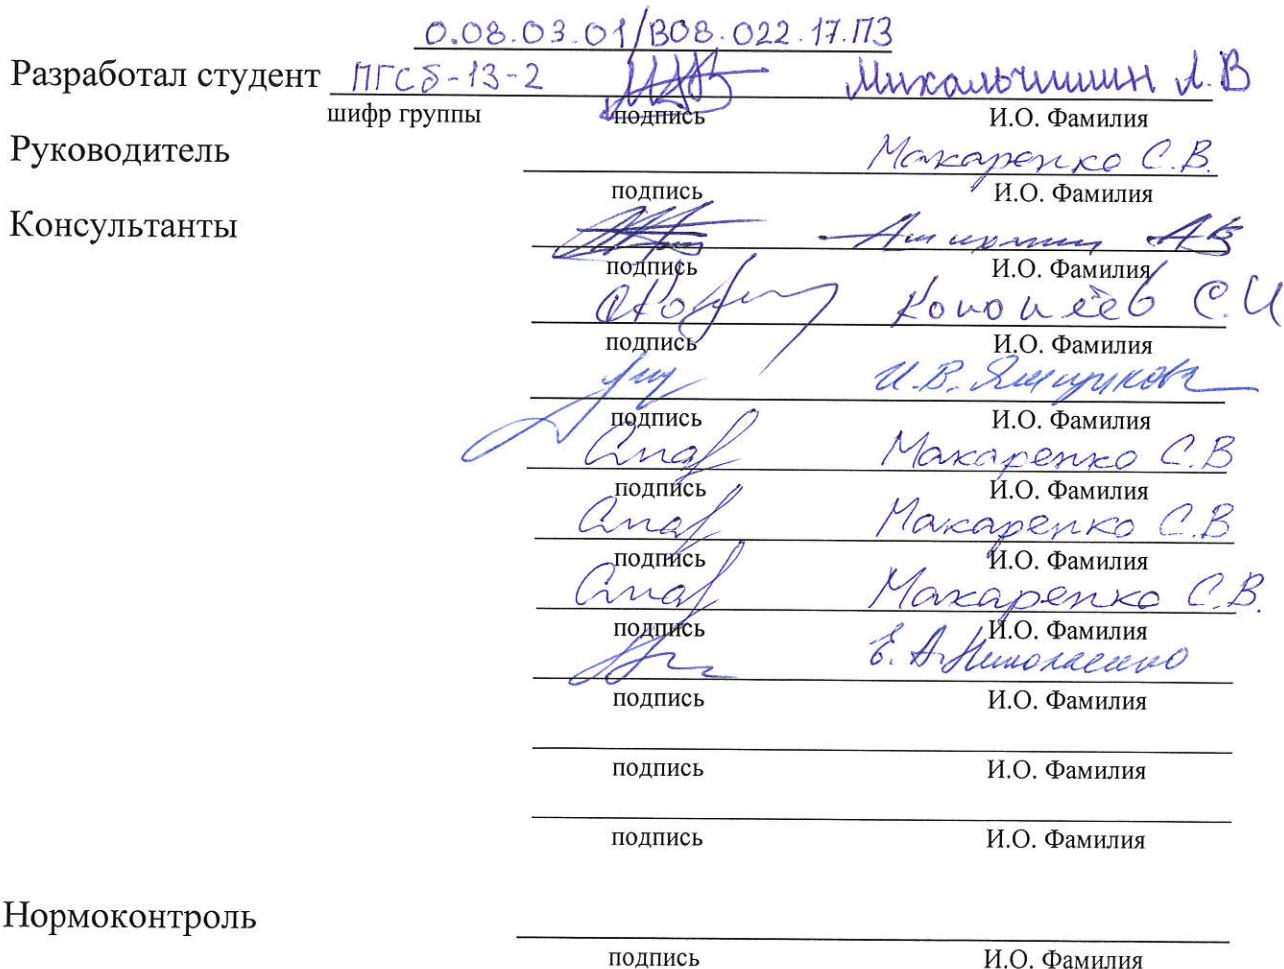 0.08.03.01/В08.022.17.ПЗ
Разработал студент ПГСб-13-2 Михальчишин Л.В
шифр группы подпись И.О. Фамилия
Руководитель Макаренко С.В.
подпись И.О. Фамилия
Консультанты
подпись И.О. Фамилия
С.И
подпись И.О. Фамилия
И.В.
подпись И.О. Фамилия
Макаренко С.В
подпись И.О. Фамилия
Макаренко С.В
подпись И.О. Фамилия
Макаренко С.В.
подпись И.О. Фамилия
Е.А. Николаенко
подпись И.О. Фамилия
подпись И.О. Фамилия
подпись И.О. Фамилия
Нормоконтроль
подпись И.О. Фамилия